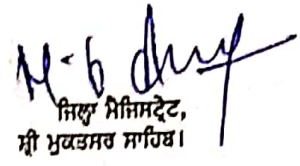 ਜਿਲ੍ਹਾ ਮੈਜਿਸਟ੍ਰੇਟ,
ਸ੍ਰੀ ਮੁਕਤਸਰ ਸਾਹਿਬ।